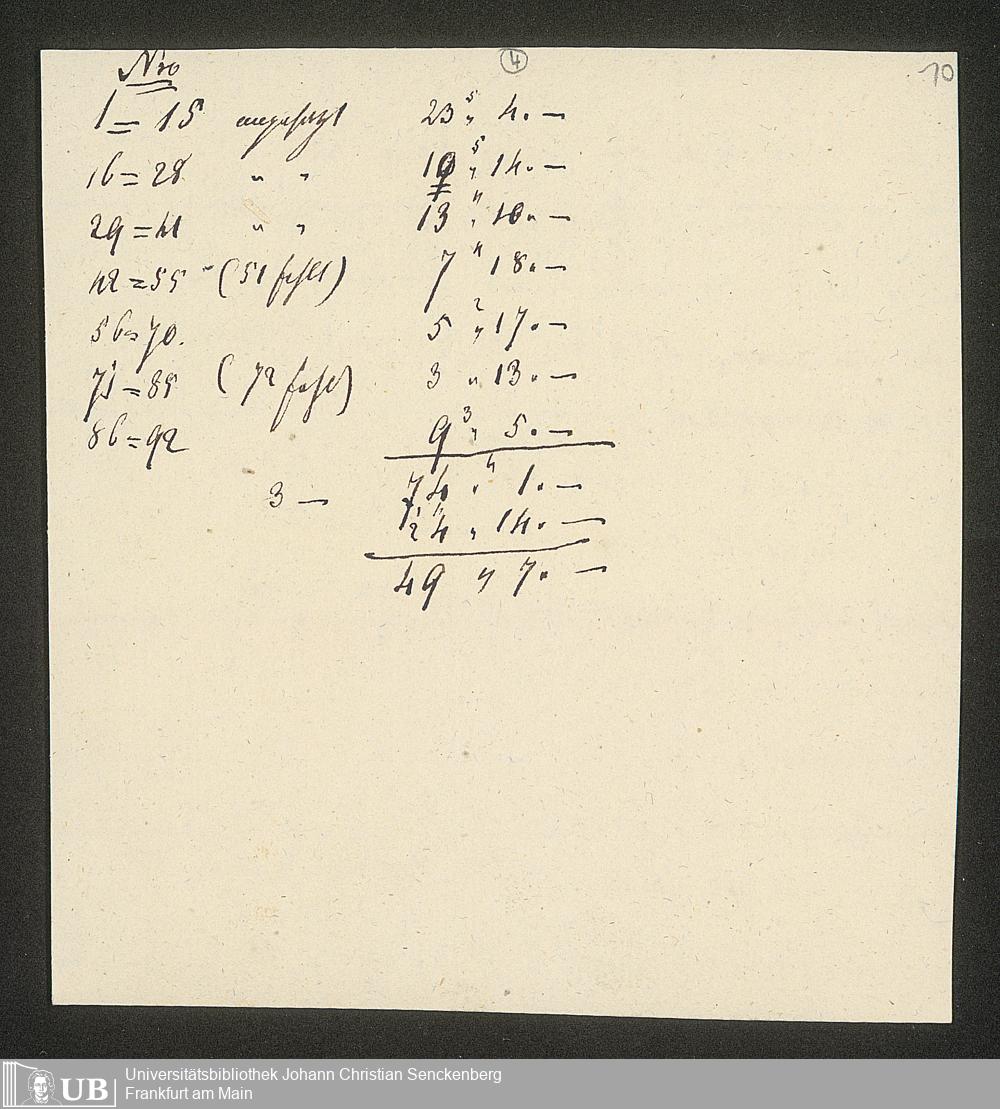 4
10
Nro
1 = 15 angesetzt 23 5 „ 4. —
16 = 28 „ „ 10 5 „ 14. —
29 = 41 „ „ 13 4 „ 10. —
42 = 55 - (51 fehlt) 7 4 18. —
56 = 70. 5 2 „ 17. —
71 = 85 (72 fehlt) 3 „ 13. —
86 = 92 9 3 „ 5. —
3 — 74 „ 4 1. —
24 „ 14. —
49 „ 7. —
UB Universitätsbibliothek Johann Christian Senckenberg
Frankfurt am Main